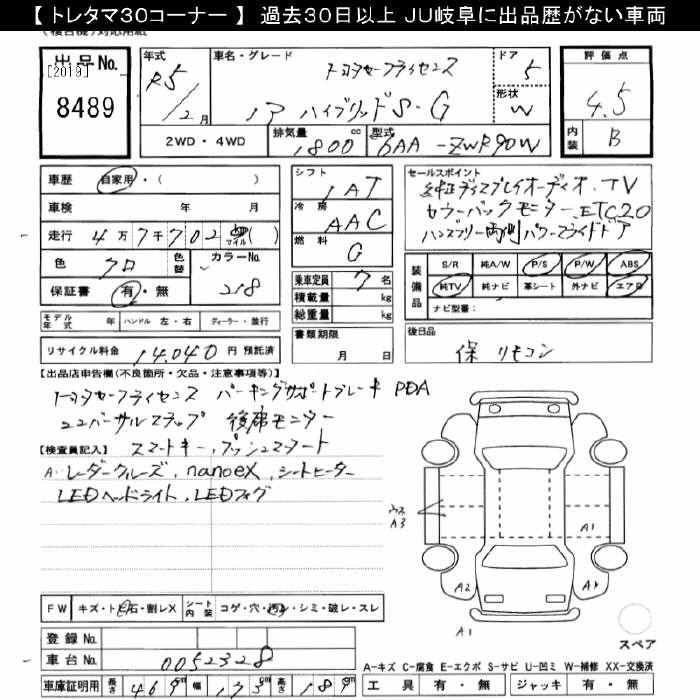 【 トレタマ30コーナー 】 過去30日以上 JU岐阜に出品歴がない車両
出品No.
[2019]
8489
年式
R5
/2月
車名・グレード
トヨタセーフティセンス
ノア ハイブリッドS-G
ドア
5
形状
W
評価点
4.5
内装
B
2WD・4WD
排気量
1800 cc
型式
6AA-ZWR90W
車歴 自家用・( )
車検 年 月
走行 4万7千702 マイル ( )
色 クロ 色替
カラーNo. 218
保証書 有・無
シフト
IAT
冷房
AAC
燃料
G
乗車定員 7名
積載量 kg
総重量 kg
セールスポイント
純正ディスプレイオーディオ.TV
カラーバックモニター.ETC2.0
ハンズフリー両側パワースライドドア
装備品
S/R 純A/W P/S P/W ABS
純TV 純ナビ 革シート 外ナビ エアB
ナビ型番:
モデル年式 年 ハンドル 左・右 ディーラー・並行
リサイクル料金 14,040 円 預託済
書類期限
月 日
後日品
保 リモコン
【出品店申告欄(不良箇所・欠品・注意事項等)】
トヨタセーフティセンス パーキングサポートブレーキ PDA
ユニバーサルステップ 後席モニター
【検査員記入】 スマートキー.プッシュスタート
A・レーダークルーズ.nanoeX.シートヒーター
LEDヘッドライト.LEDフォグ
A3
A1
A2
A1
FW キズ・ト石・割レX シート内装 コゲ・穴・汚レ・シミ・破レ・スレ
スペア
登録No.
車台No. 0052328
A-キズ C-腐食 E-エクボ S-サビ U-凹ミ W-補修 XX-交換済
車庫証明用 長さ 469cm 幅 173cm 高さ 189cm
工具 有・無 ジャッキ 有・無